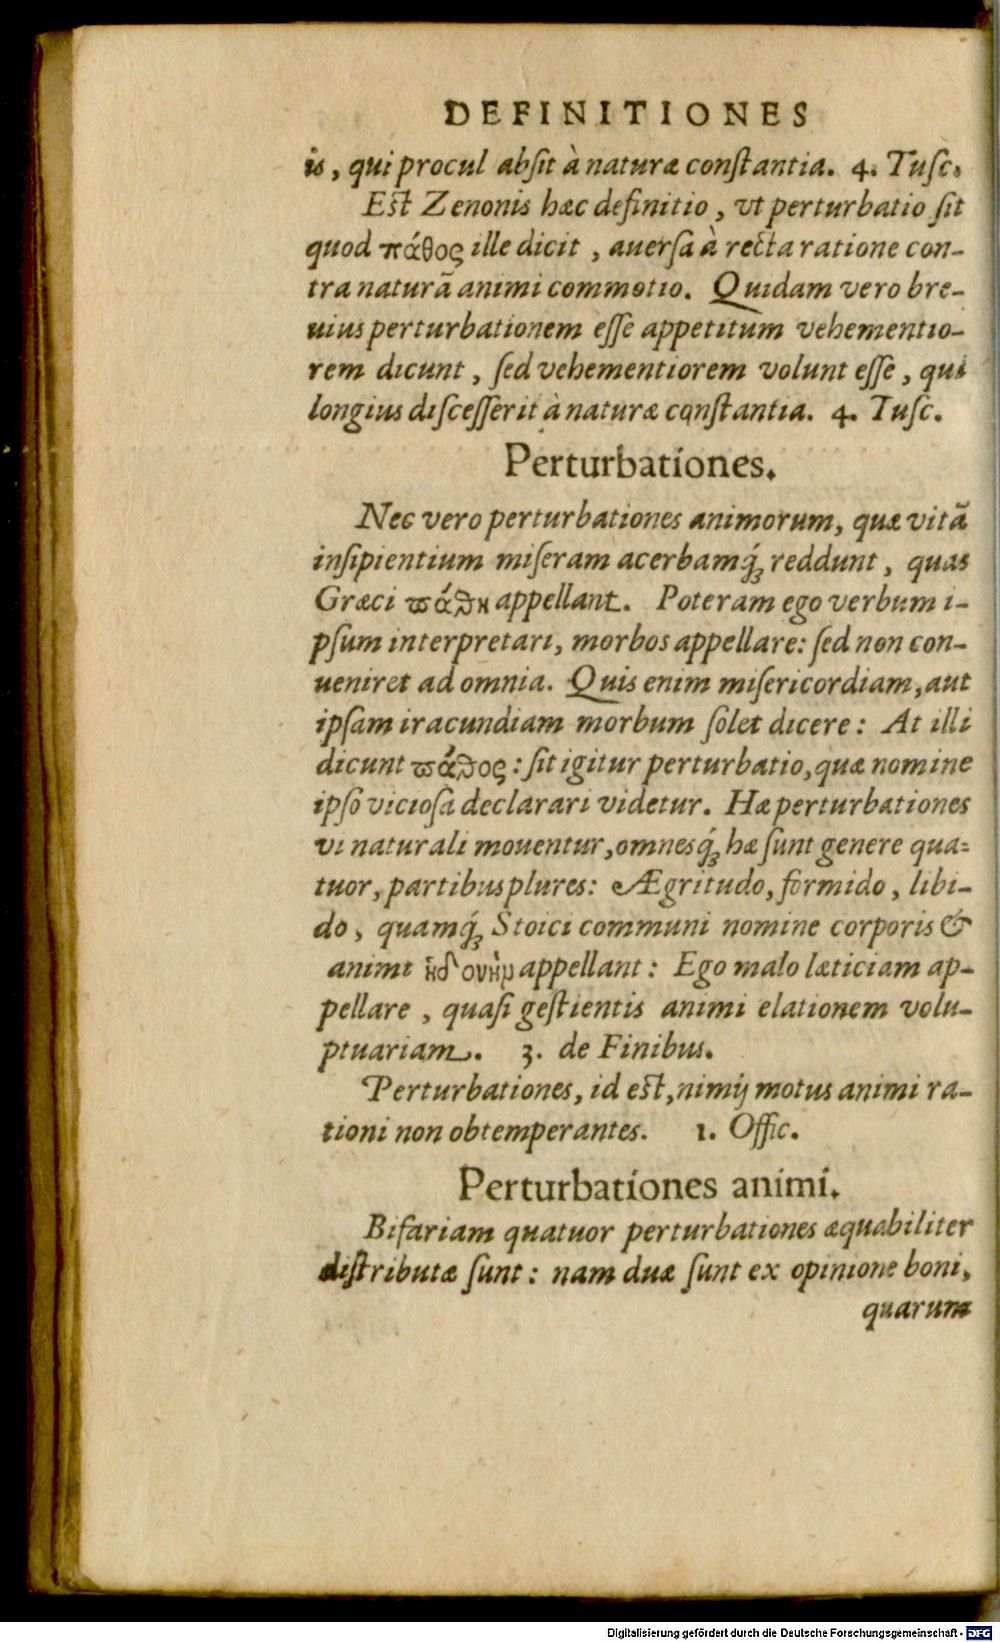 DEFINITIONES
is, qui procul absit à naturæ constantia. 4. Tusc.
Est Zenonis hæc definitio, vt perturbatio sit
quod πάθος ille dicit, auersa à recta ratione con-
tra naturã animi commotio. Quidam vero bre-
uius perturbationem esse appetitum vehementio-
rem dicunt, sed vehementiorem volunt esse, qui
longius discesserit à naturæ constantia. 4. Tusc.
Perturbationes.
Nec vero perturbationes animorum, quæ vitã
insipientium miseram acerbamq́; reddunt, quas
Græci πάθη appellant. Poteram ego verbum i-
psum interpretari, morbos appellare: sed non con-
ueniret ad omnia. Quis enim misericordiam, aut
ipsam iracundiam morbum solet dicere: At illi
dicunt πάθος: sit igitur perturbatio, quæ nomine
ipso viciosa declarari videtur. Hæ perturbationes
vi naturali mouentur, omnesq́; hæ sunt genere qua-
tuor, partibus plures: Ægritudo, formido, libi-
do, quamq́; Stoici communi nomine corporis &
animi ἡδονὴμ appellant: Ego malo læticiam ap-
pellare, quasi gestientis animi elationem volu-
ptuariam. 3. de Finibus.
Perturbationes, id est, nimij motus animi ra-
tioni non obtemperantes. 1. Offic.
Perturbationes animi.
Bifariam quatuor perturbationes æquabiliter
distributæ sunt: nam duæ sunt ex opinione boni,
quarum
Digitalisierung gefördert durch die Deutsche Forschungsgemeinschaft - DFG